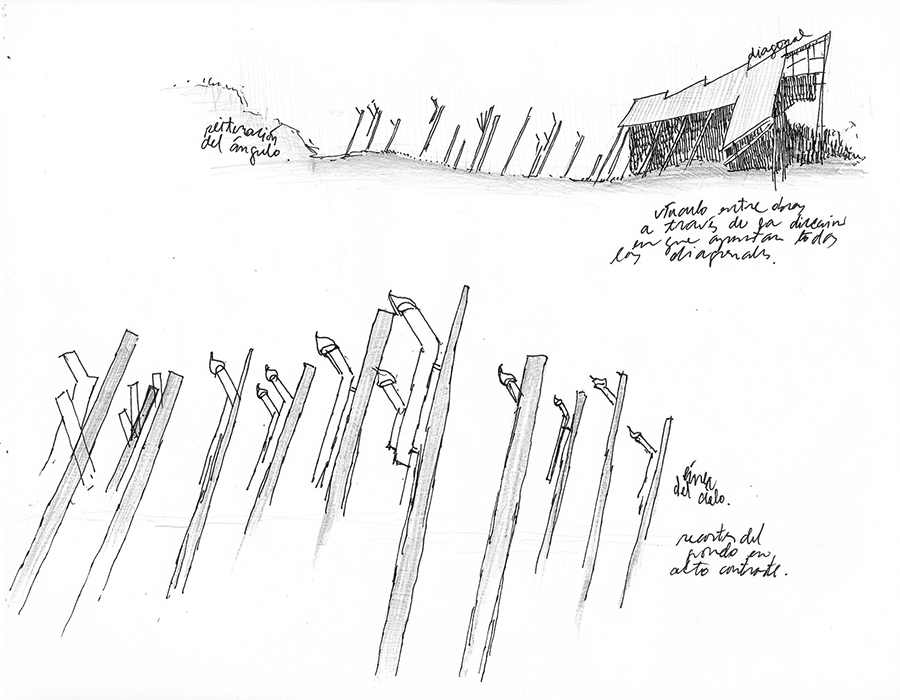 diagonal
reiteración
del ángulo.
vínculo entre obras
a través de la dirección
en que apuntan todas
las diagonales.
línea
del cielo.
recortes del
fondo en
alto contraste.